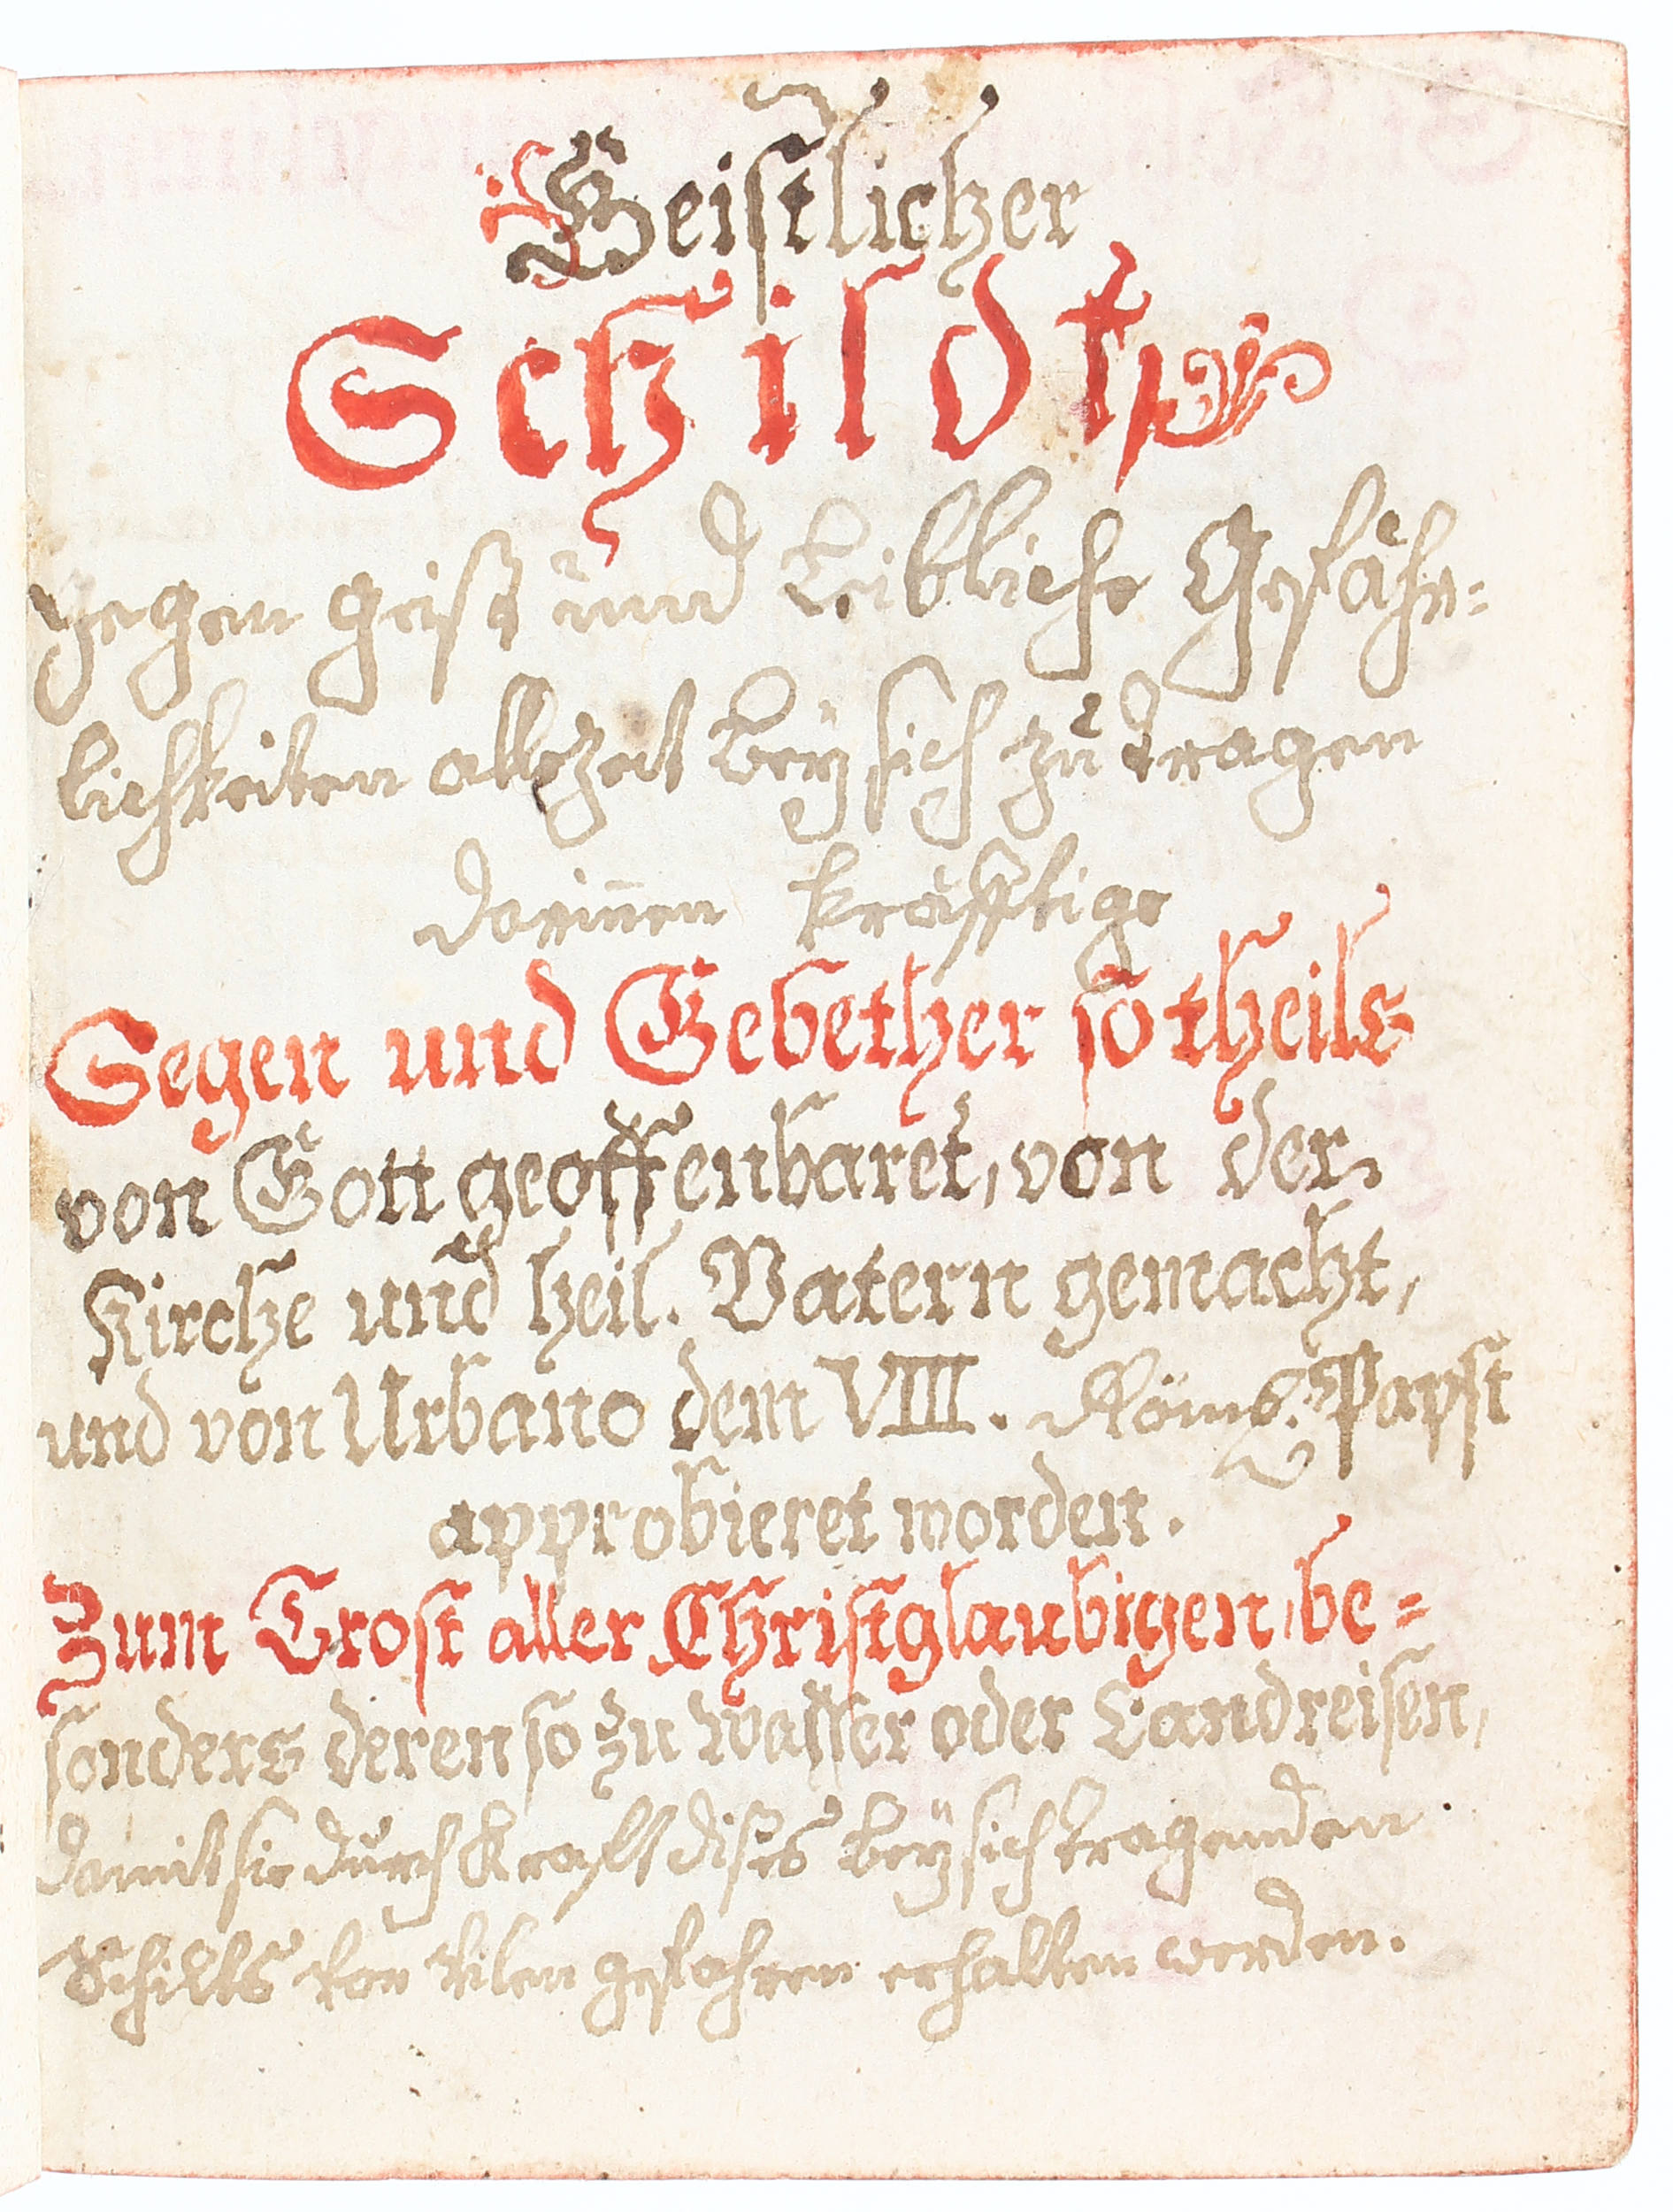 Geistlicher
Schildt,
gegen geist und Leibliche Gefähr-
lichkeiten allezeit bey sich zu tragen
darin̄en kräfftige
Segen und Gebether so theils
von Gott geoffenbaret, von der
Kirche und heil. Vatern gemacht,
und von Urbano dem VIII. Röms. Papst
approbieret worden.
Zum Trost aller Christglaubigen, be-
sonders deren so zu Wasser oder Landreisen,
damit sie durch Krafft dises bey sich tragenden
Schilts vor vilen gefahren erhalten werden.